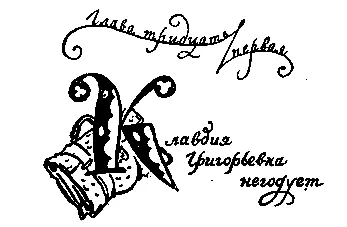 Глава тридцать первая
Клавдия
Григорьевна
негодует